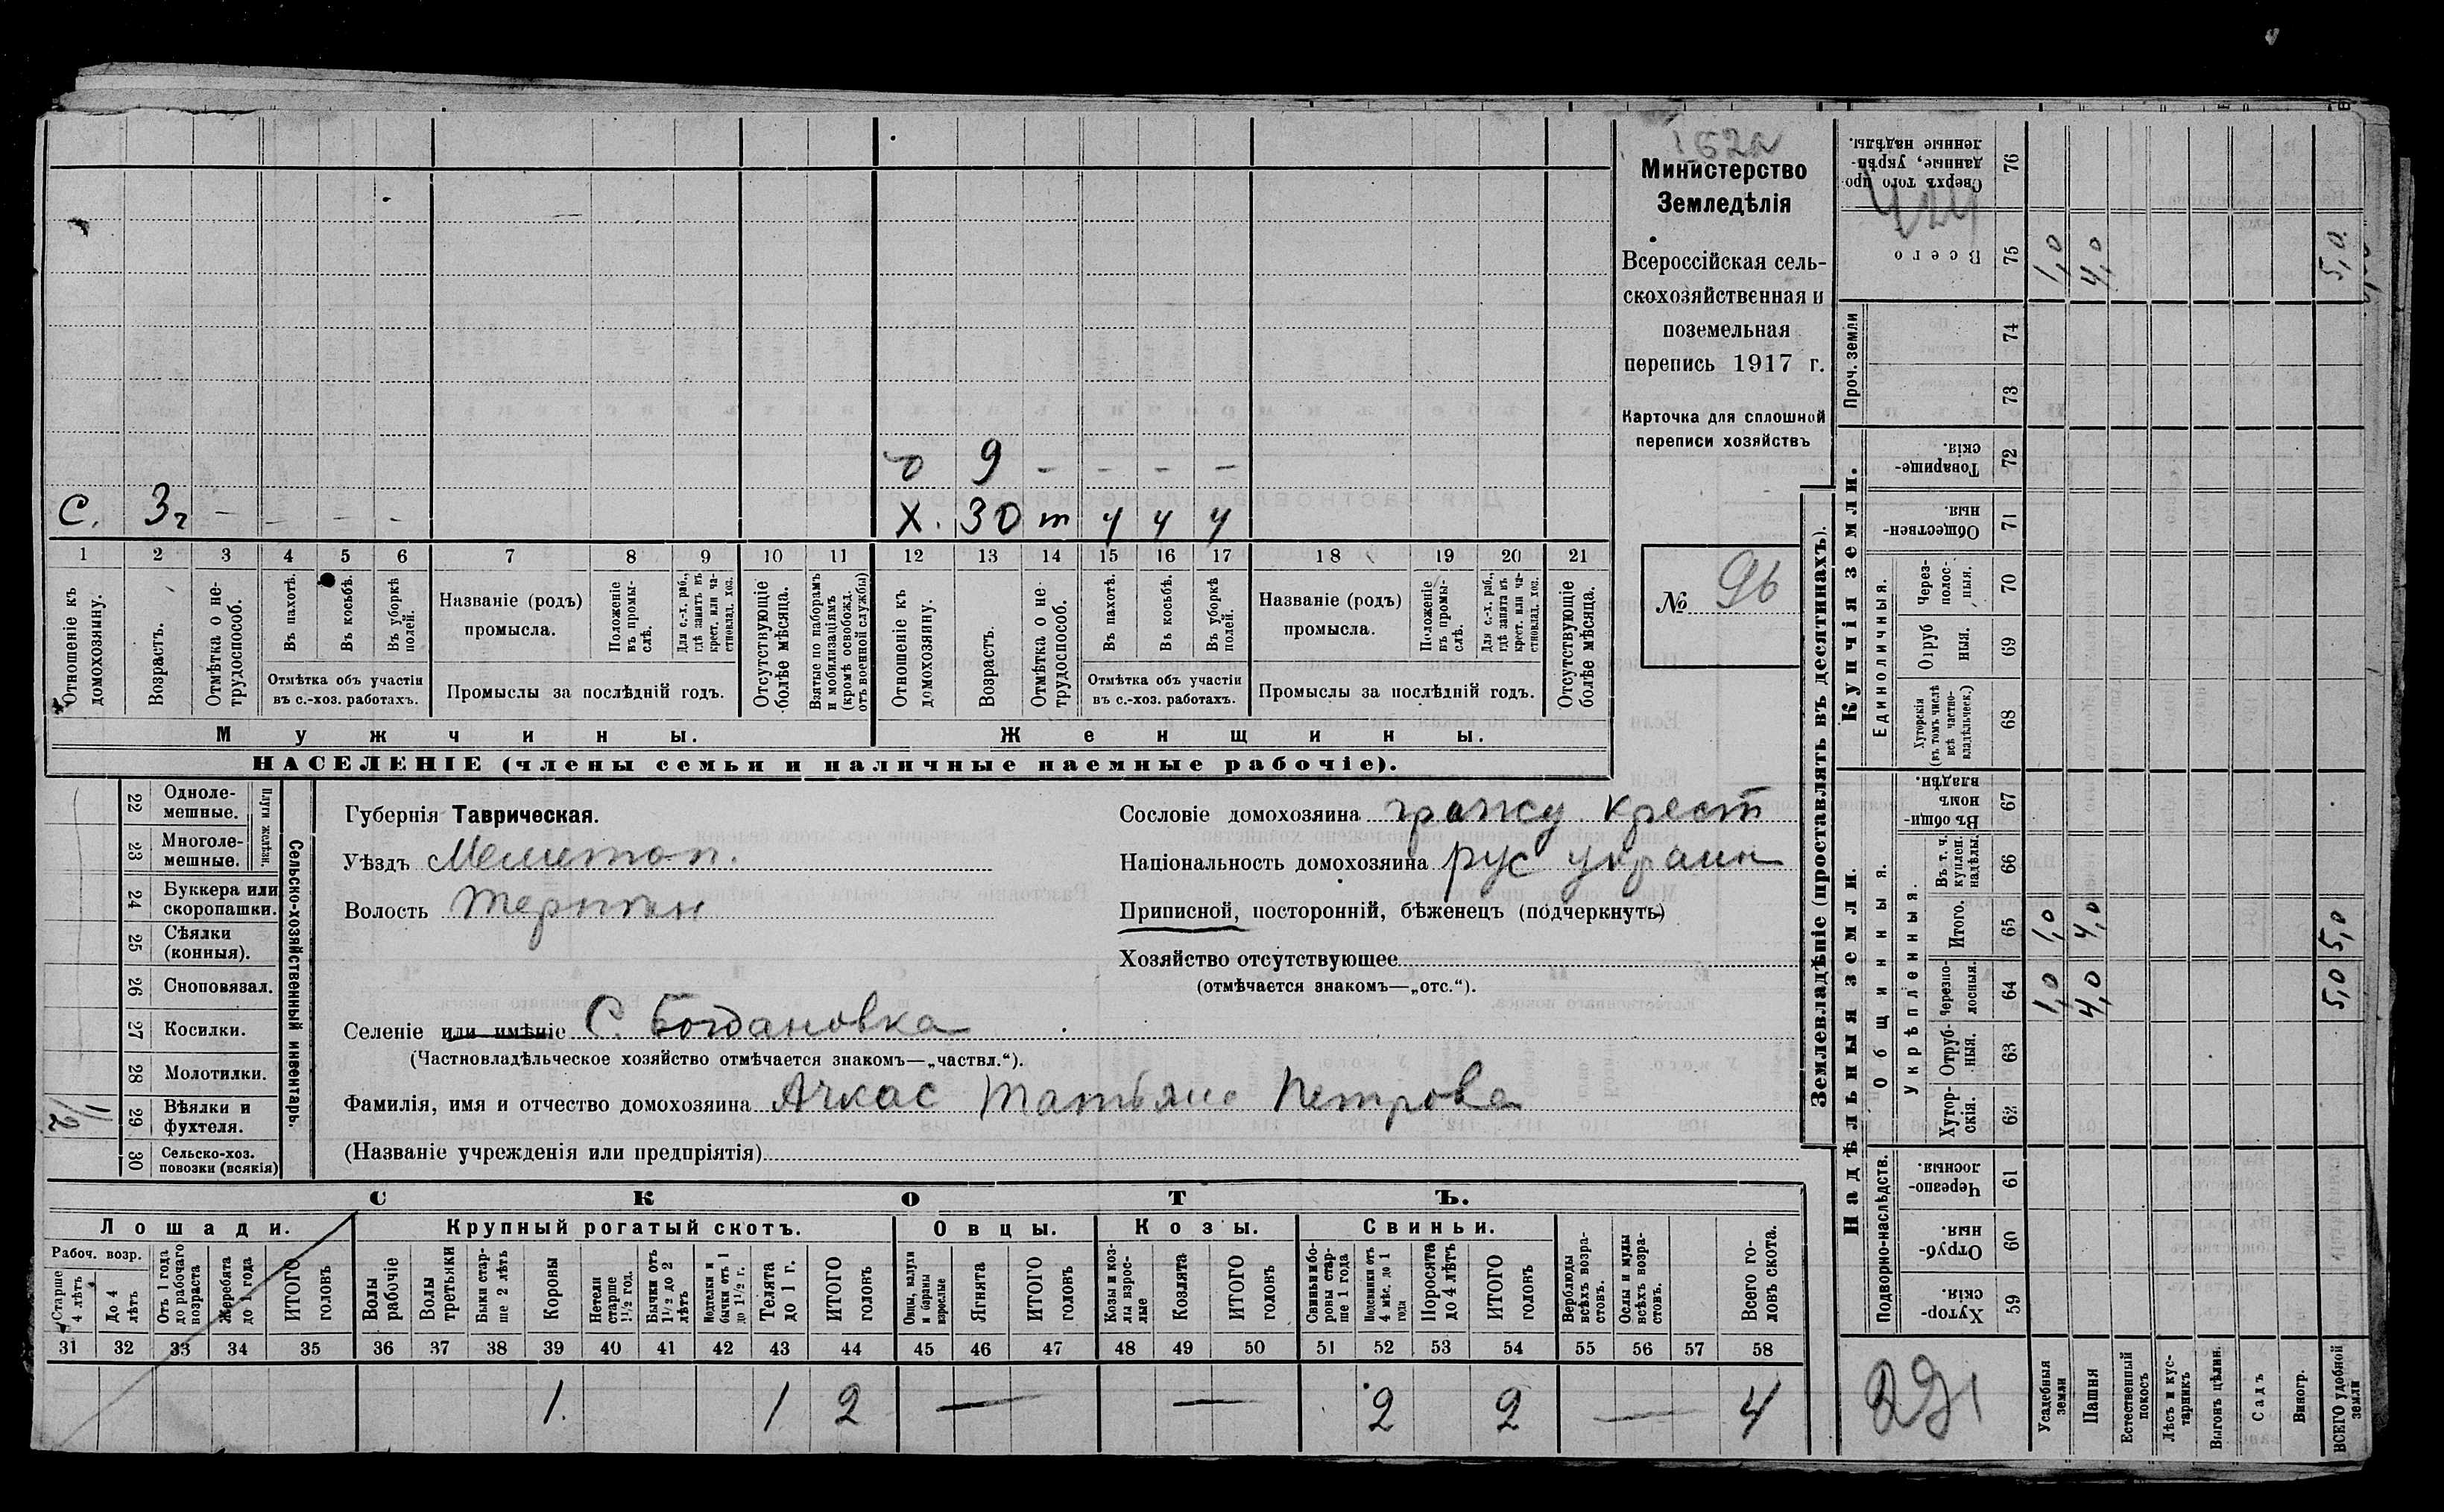 Министерство
Земледѣлія
Всероссійская сель-
скохозяйственная и
поземельная
перепись 1917 г.
Карточка для сплошной
переписи хозяйствъ
№ 96
о 9 - - - -
С. 3г - - - - Х. 30 т ч ч ч
1 2 3 4 5 6 7 8 9 10 11 12 13 14 15 16 17 18 19 20 21
Отношеніе къ домохозяину.
Возрастъ.
Отмѣтка о не-трудоспособ.
Въ пахотѣ.
Въ косьбѣ.
Въ уборкѣ полей.
Отмѣтка объ участіи
въ с.-хоз. работахъ.
Названіе (родъ)
промысла.
Положеніе въ промы-слѣ.
Для с.-х. раб., гдѣ занятъ въ крест. или ча-стновлад. хоз.
Промыслы за послѣдній годъ.
Отсутствующіе болѣе мѣсяца.
Взятые по наборамъ и мобилизаціямъ (кромѣ освобожд. отъ военной службы)
Отношеніе къ домохозяину.
Возрастъ.
Отмѣтка о не-трудоспособ.
Въ пахотѣ.
Въ косьбѣ.
Въ уборкѣ полей.
Отмѣтка объ участіи
въ с.-хоз. работахъ.
Названіе (родъ)
промысла.
Положеніе въ промы-слѣ.
Для с.-х. раб., гдѣ занятъ въ крест. или ча-стновлад. хоз.
Промыслы за послѣдній годъ.
Отсутствующіе болѣе мѣсяца.
Мужчины. Женщины.
НАСЕЛЕНІЕ (члены семьи и наличные наемные рабочіе).
Сельско-хозяйственный инвентарь.
Плуги желѣзн.
22 Одноле-мешные.
23 Многоле-мешные.
24 Буккера или скоропашки.
25 Сѣялки (конныя).
26 Сноповязал.
27 Косилки.
28 Молотилки.
29 Вѣялки и фухтеля.
30 Сельско-хоз. повозки (всякія)
Губернія Таврическая.
Уѣздъ Мелитоп.
Волость Терпѣн
Селеніе или имѣніе С. Богдановка
(Частновладѣльческое хозяйство отмѣчается знакомъ—„частвл.“).
Фамилія, имя и отчество домохозяина Ачкас Татьяна Петрова
(Названіе учрежденія или предпріятія)
Сословіе домохозяина гражд крест
Національность домохозяина рус украин
Приписной, посторонній, бѣженецъ (подчеркнуть)
Хозяйство отсутствующее
(отмѣчается знакомъ—„отс.“).
СКОТЪ.
Лошади. Крупный рогатый скотъ. Овцы. Козы. Свиньи.
Рабоч. возр.
Старше 4 лѣтъ
До 4 лѣтъ
Отъ 1 года до рабочаго возраста
Жеребята до 1 года
ИТОГО головъ
Волы рабочіе
Волы третьяки
Быки стар-ше 2 лѣтъ
Коровы
Нетели старше 1½ год.
Бычки отъ 1½ до 2 лѣтъ
Подтелки и бычки отъ 1 до 1½ г.
Телята до 1 г.
ИТОГО головъ
Овцы, валухи и бараны взрослые
Ягнята
ИТОГО головъ
Козы и коз-лы взрос-лые
Козлята
ИТОГО головъ
Свиньи и бо-ровы стар-ше 1 года
Подсвинки отъ 4 мѣс. до 1 года
Поросята до 4 лѣтъ
ИТОГО головъ
Верблюды всѣхъ возра-стовъ.
Ослы и мулы всѣхъ возра-стовъ.
Всего го-ловъ скота.
31 32 33 34 35 36 37 38 39 40 41 42 43 44 45 46 47 48 49 50 51 52 53 54 55 56 57 58
1. 1 2 — — 2 2 — 4
Землевладѣніе (проставлять въ десятинахъ).
Купчія земли.
Надѣльныя земли.
Сверхъ того про-данные, укрѣп-ленные надѣлы. 76
Всего 75 1,0 4,0 5,0
Проч. земли 74
73
Товарище-скія. 72
Обществен-ныя. 71
Единоличныя.
Через-полос-ныя. 70
Отруб ныя. 69
Хуторскія (въ томъ числѣ всѣ частно-владѣльческ.) 68
Общинныя.
Въ общи-номъ владѣн. 67
Укрѣпленныя.
Въ т. ч. куплен. надѣлы. 66
Итого. 65 1,0 4,0 5,0
Черезпо-лосныя. 64 1,0 4,0 5,0
Отруб-ныя. 63
Хутор-скія. 62
Подворно-наслѣдств.
Черезпо-лосныя. 61
Отруб-ныя. 60
Хутор-скія. 59
Усадебныя земли
Пашня
Естественный покосъ
Лѣсъ и кус-тарникъ
Выгонъ цѣлин.
Садъ
Виногр.
ВСЕГО удобной земли